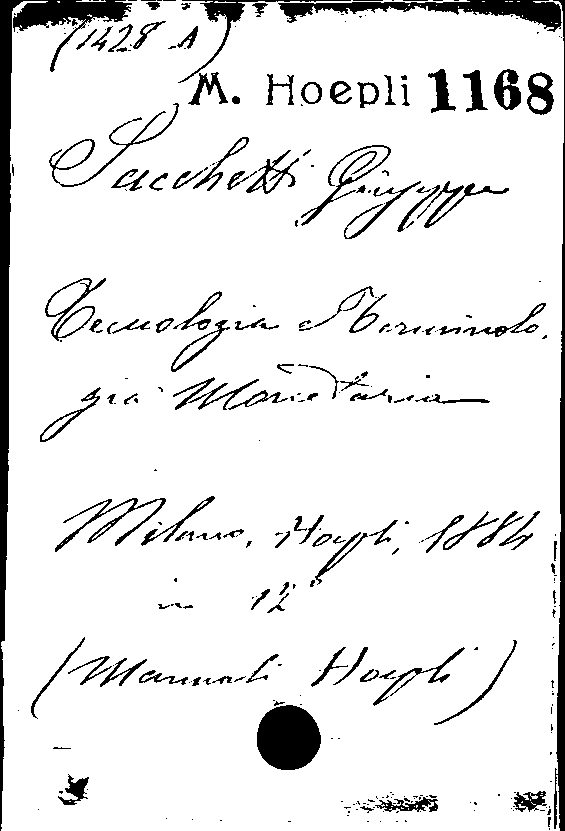 (1428 A)
M. Hoepli 1168
Sacchetti Giuseppe
Tecnologia e Terminolo.
gia Monetaria
Milano, Hoepli, 1884
in 12°
(Manuali Hoepli)